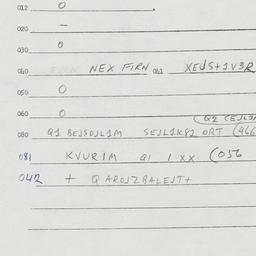 012 0
020 –
030 0
040 NEX FIRN 041 XEWS+1V3R
050 0
060 0
080 91 BEJSOJL1M SEJL1K82 ORT (966
081 KVURIM 91 1 XX (056
042 + Q AROJZBALEJT+